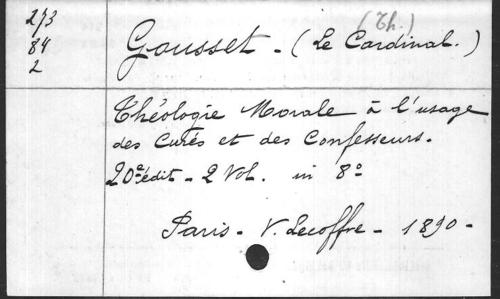 273
84
2
(Th.)
Gousset - (Le Cardinal.)
Théologie Morale à l'usage
des Curés et des Confesseurs.
20e édit - 2 Vol. in 8°
Paris - V. Lecoffre - 1890 -